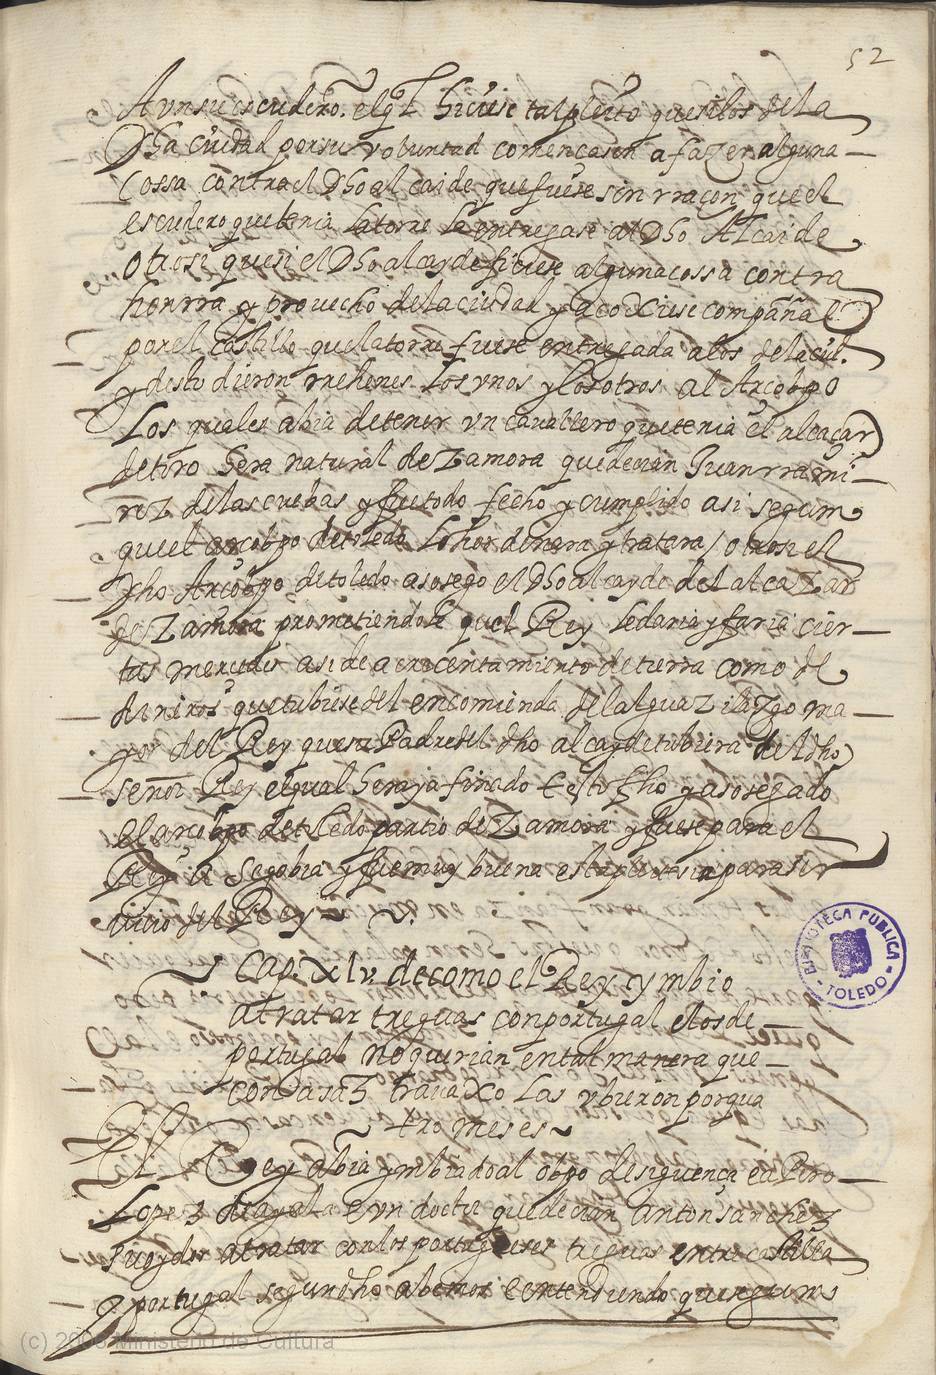 52
A vn su escudero. el ql hiçiese tal pleito que si los de la
Dha ciudad por su voluntad començasen a fazer alguna
Cossa contra el Dho alcaide que fuese sin rraçon que el
escudero que tenia la torre la entregase al Dho Alcaide
Otrosi que si el Dho alcayde fiçiese alguna cossa contra
honrra y provecho de la ciudad y acoxiese compañas
por el castillo que la torre fuese entregada a los de la ciu.
y desto dieron rrehenes los vnos y los otros al Arçobpo
Los quales abia de tener vn cauallero que tenia el alcaçar
de toro hera natural de Zamora que decian Juan rrami
rez de las cuebas y fue todo fecho y cumplido asi segun
que el arçobpo de toledo lo hordenara y tratara / otrosi el
Dho Arçobpo de toledo asosego el Dho alcayde del alcazar
de Zamora prometiendole quel Rey le daria y faria cier
tas mercedes asi de acrecentamiento de tierra como de
dineros que tubiese del encomienda del alguazilazgo ma
yor del Rey que su Padre del dho alcayde tubiera del dho
señor Rey el qual hera ya finado E esto fho y asosegado
el arçobpo de toledo partio de Zamora y fuese para el
Rey a Segobia y fue muy buena esta pleitesia para ser
uicio del Rey
Cap. xlv. de como el Rey ymbio
a tratar treguas con portugal e los de
portugal no querian en tal manera que
con asaz travaxo las vbieron por qua
tro meses
El Rey abia ymbiado al obpo de siguença e a Pero
Lopez de ayala e vn doctor que decian anton sanchez
a tratar con los portugueses treguas entre castilla
y portugal segun dho abemos e entendiendo que segun
BIBLIOTECA PUBLICA
TOLEDO
(c) 2006 Ministerio de Cultura